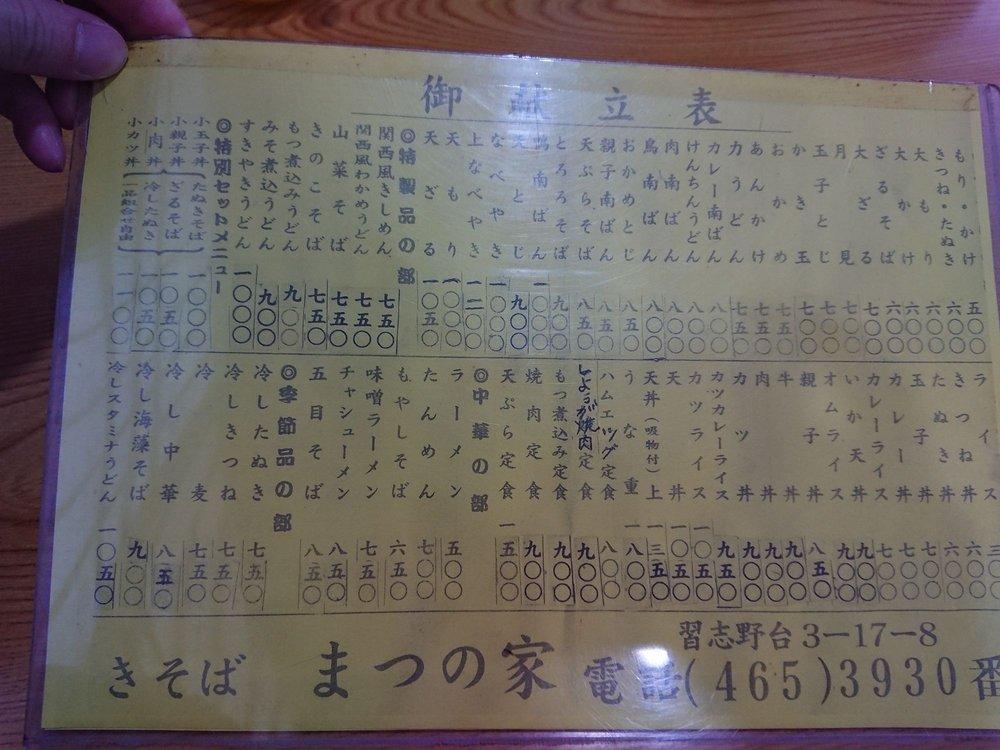 御献立表
もり・かけ 五〇〇
きつね・たぬき 六〇〇
大もり 六〇〇
大かけ 六〇〇
ざるそば 六〇〇
大ざる 七〇〇
月見 七〇〇
玉子とじ 七〇〇
かき玉 七〇〇
おかめ 七五〇
あんかけ 七五〇
力うどん 七五〇
カレー南ばん 八〇〇
けんちんうどん 八〇〇
肉南ばん 八〇〇
鳥南ばん 八〇〇
おかめとじ 八五〇
親子南ばん 八五〇
天ぷらそば 八五〇
とろろそば 九〇〇
鴨南ばん 一〇〇〇
天とじ 九〇〇
なべやき 一〇〇〇
上なべやき 一二〇〇
天もり 一〇〇〇
天ざる 一〇五〇
◎特製品の部
関西風きしめん 七五〇
関西風わかめうどん 七五〇
山菜そば 七五〇
きのこそば 七五〇
もつ煮込みうどん 九〇〇
みそ煮込うどん 九〇〇
すきやきうどん 一〇〇〇
◎特別セットメニュー
小玉子丼 たぬきそば 一〇〇〇
小親子丼 ざるそば 一〇五〇
小肉丼 冷したぬき 一〇五〇
小カツ丼 一品組合せ自由 一一〇〇
ライス 三〇〇
きつね丼 六〇〇
たぬき丼 六〇〇
玉子丼 七〇〇
カレー丼 七〇〇
カレーライス 七〇〇
いか天丼 九〇〇
オムライス 九〇〇
親子丼 八五〇
牛丼 九〇〇
肉丼 九〇〇
カツ丼 九〇〇
カツカレーライス 九五〇
カツライス 一〇五〇
天丼 一〇五〇
天丼(吸物付)上 一三五〇
うな重 一八〇〇
ハムエッグ定食 八〇〇
しょうが焼肉定食 九〇〇
もつ煮込み定食 九〇〇
焼肉定食 九〇〇
天ぷら定食 一五〇〇
◎中華の部
ラーメン 五〇〇
たんめん 七〇〇
もやしそば 六五〇
味噌ラーメン 七五〇
チャシューメン 八五〇
五目そば 八五〇
◎季節品の部
冷したぬき 七五〇
冷しきつね 七五〇
冷麦 七五〇
冷し中華 八五〇
冷し海藻そば 九〇〇
冷しスタミナうどん 一〇五〇
習志野台3-17-8
きそば まつの家 電話(465)3930番